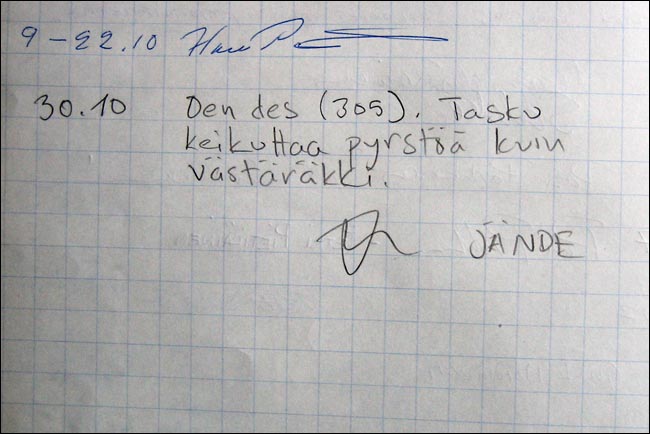 9-22.10
30.10 Oen des (305). Tasku
keikuttaa pyrstöä kuin
västäräkki.
JÄNDE